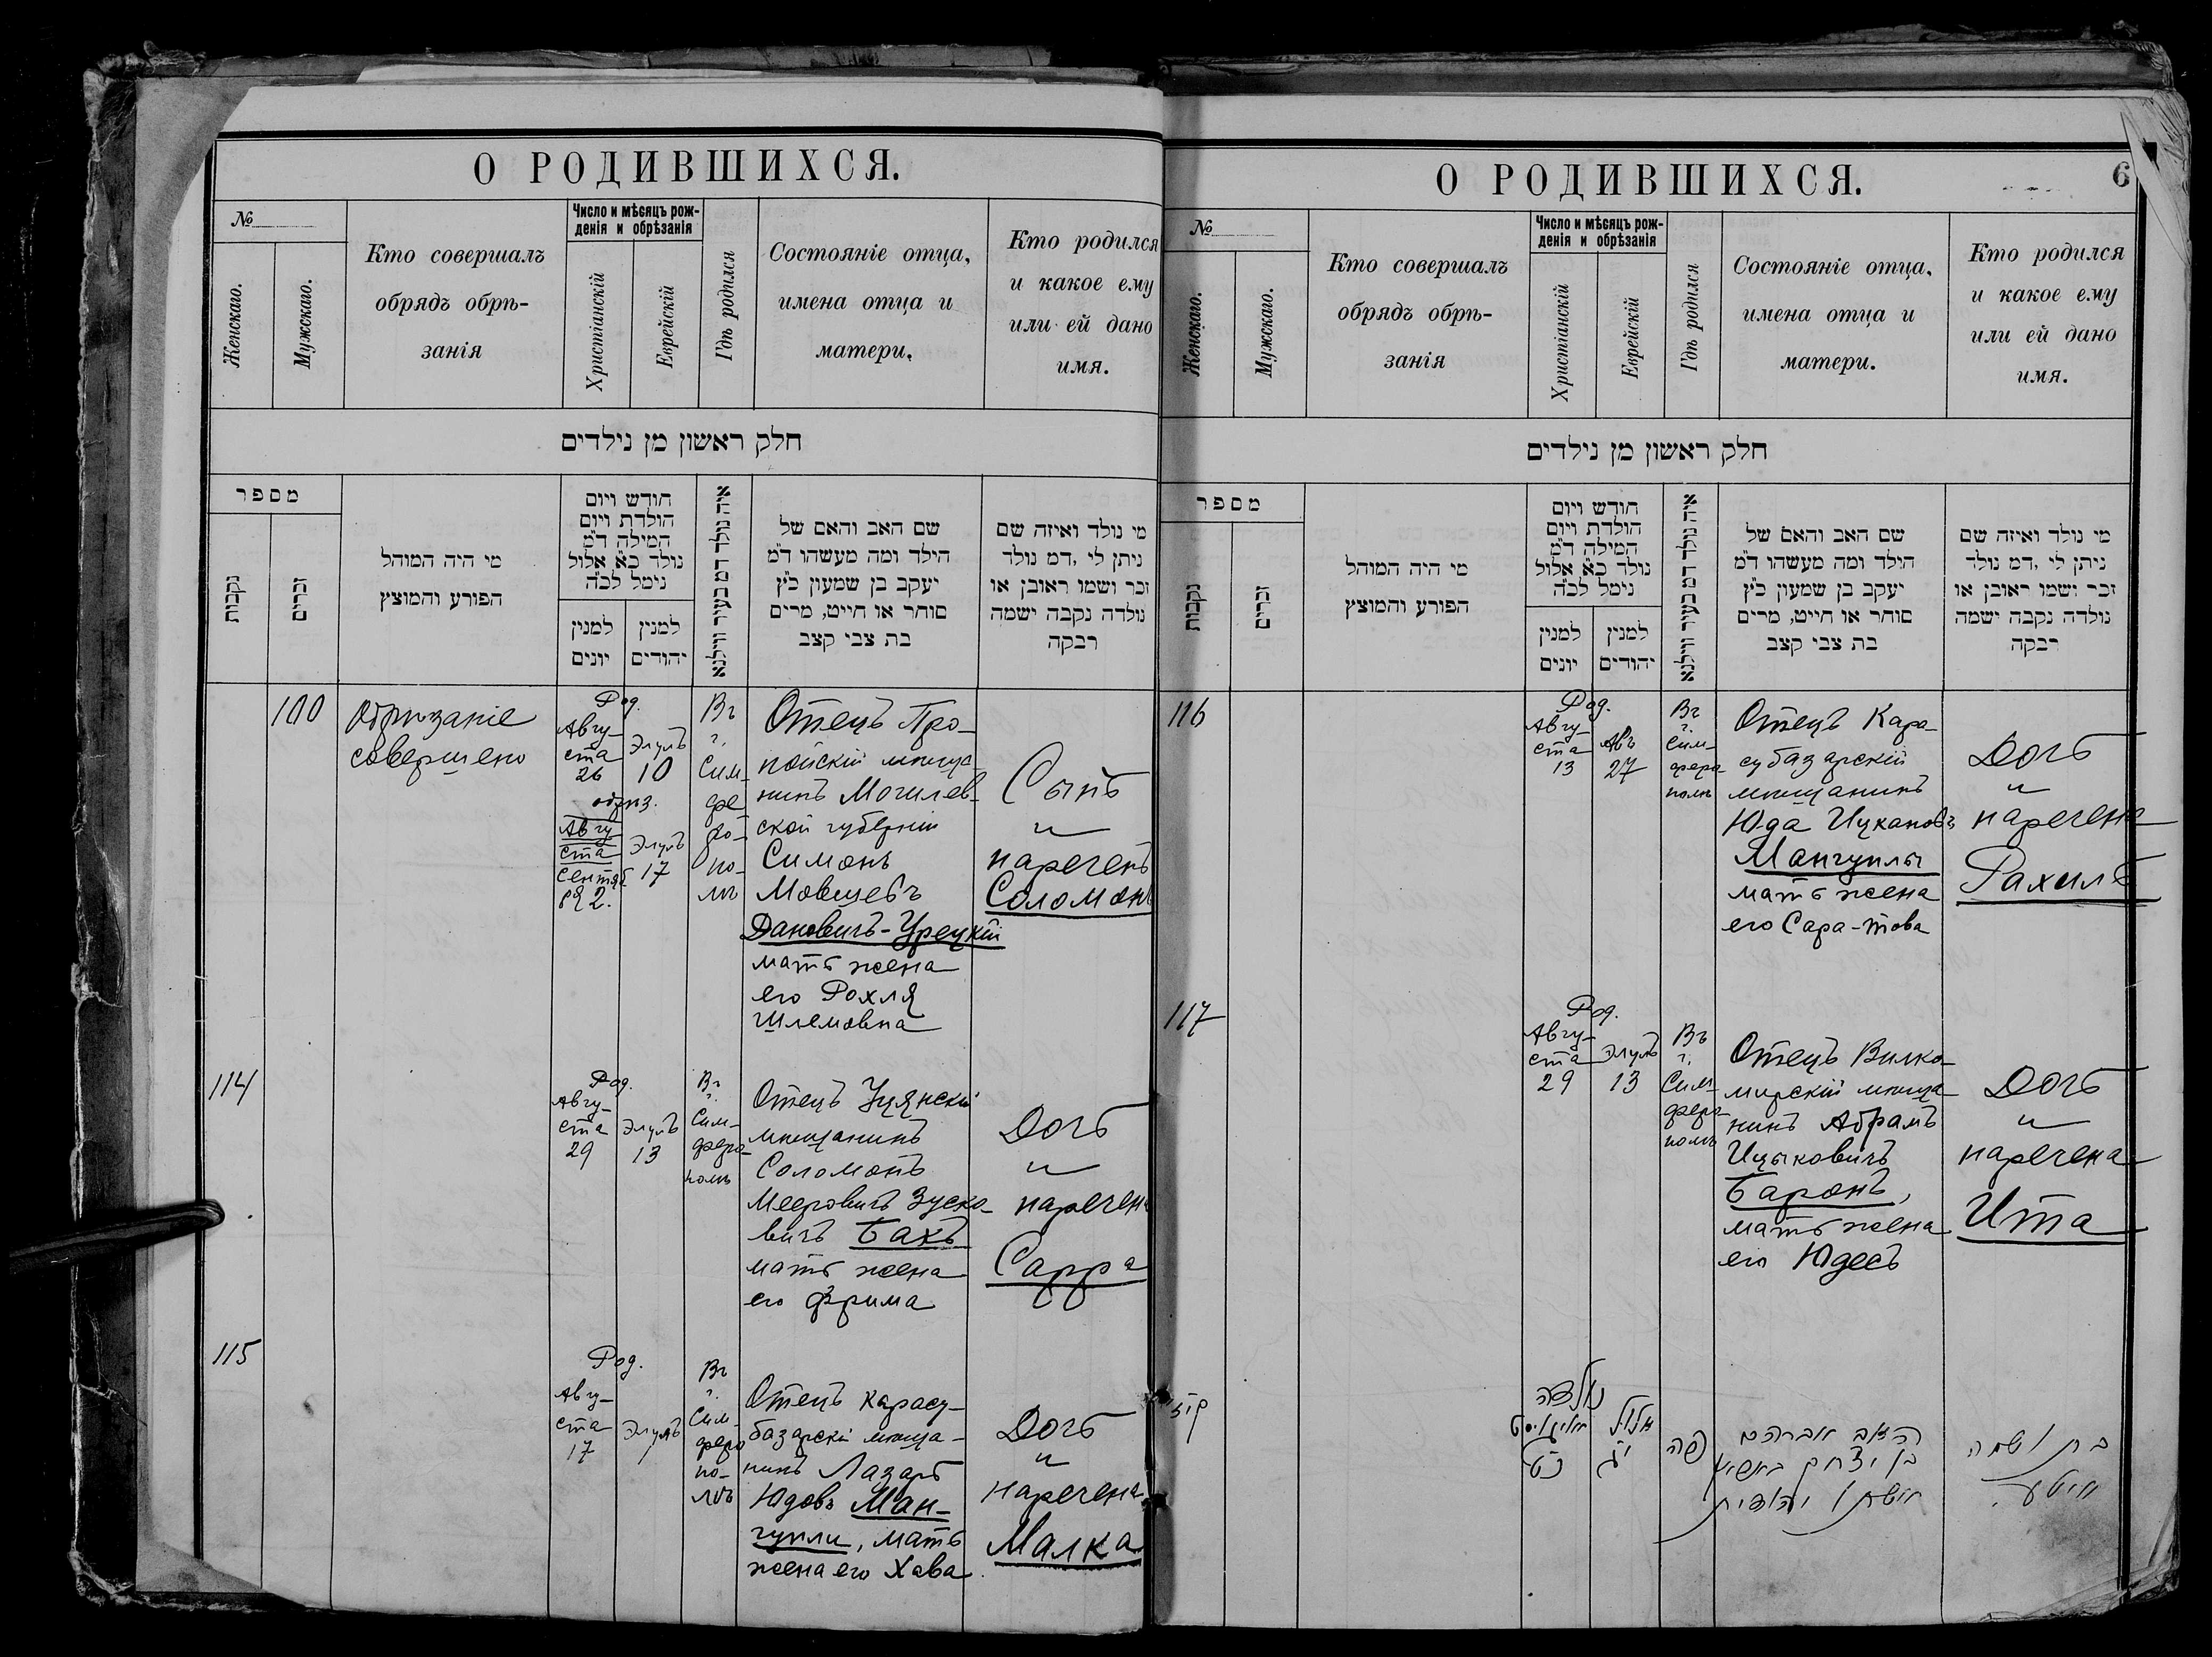 О РОДИВШИХСЯ.
№
Женскаго.
Мужскаго.
Кто совершалъ
обрядъ обрѣ-
занія
Число и мѣсяцъ рож-
денія и обрѣзанія
Христіанскій
Еврейскій
Гдѣ родился
Состояніе отца,
имена отца и
матери.
Кто родился
и какое ему
или ей дано
имя.
חלק ראשון מן נילדים
מספר
נקבות
זכרים
מי היה המוהל
הפורע והמוצץ
חודש ויום
הולדת ויום
המילה ד״מ
נולד כ״א אלול
נימל לכ״ה
למנין
יונים
למנין
יהודים
איה נולד דמ בעיר ווילנא
שם האב והאם של
הילד ומה מעשהו ד״מ
יעקב בן שמעון כ״ץ
סוחר או חייט, מרים
בת צבי קצב
מי נולד ואיזה שם
ניתן לי ,דמ נולד
זכר ושמו ראובן או
נולדה נקבה ישמה
רבקה
100
Обрѣзаніе
совершено
Род.
Авгу-
ста
26
Элулъ
10
обрѣз.
Авгу
ста
Сентяб
ря 2.
Элулъ
17
Въ
г.
Сим-
фе
ро-
по-
лѣ
Отецъ Про-
пойскій мѣща-
нинъ Могилев-
ской губерніи
Симонъ
Мовшевъ
Дановичъ-Урецкій
мать жена
его Рохля
Шлемовна
Сынъ
и
нареченъ
Соломонъ
114
Род.
Авгу-
ста
29
Элулъ
13
Въ
г.
Сим-
феро-
полѣ
Отецъ Уцянскій
мѣщанинъ
Соломонъ
Мееровичъ Зуско-
вичъ Бахъ
мать жена
его Фрума
Дочь
и
наречена
Сарра
115
Род.
Авгу-
ста
17
Элулъ
1
Въ
г.
Сим-
феро
по-
лѣ
Отецъ Карасу-
базарскі мѣща-
нинъ Лазарь
Юдовъ Ман-
гупли, мать
жена его Хава
Дочь
и
наречена
Малка
О РОДИВШИХСЯ.
6
№
Женскаго.
Мужскаго.
Кто совершалъ
обрядъ обрѣ-
занія
Число и мѣсяцъ рож-
денія и обрѣзанія
Христіанскій
Еврейскій
Гдѣ родился
Состояніе отца,
имена отца и
матери.
Кто родился
и какое ему
или ей дано
имя.
חלק ראשון מן נילדים
מספר
נקבות
זכרים
מי היה המוהל
הפורע והמוצץ
חודש ויום
הולדת ויום
המילה ד״מ
נולד כ״א אלול
נימל לכ״ה
למנין
יונים
למנין
יהודים
איה נולד דמ בעיר ווילנא
שם האב והאם של
הילד ומה מעשהו ד״מ
יעקב בן שמעון כ״ץ
סוחר או חייט, מרים
בת צבי קצב
מי נולד ואיזה שם
ניתן לי ,דמ נולד
זכר ושמו ראובן או
נולדה נקבה ישמה
רבקה
116
Род.
Авгу-
ста
13
Авъ
27
Въ
г.
Сим-
феро-
полѣ
Отецъ Кара-
субазарскій
мѣщанинъ
Юда Ицкановъ
Мангуплы
мать жена
его Сара-това
Дочь
и
наречена
Рахиль
117
Род.
Авгу-
ста
29
Элулъ
13
Въ
г.
Сим-
феро-
полѣ
Отецъ Вилко-
мирскій мѣща-
нинъ Абрамъ
Ицыковичъ
Баронъ,
мать жена
его Юдесъ
Дочь
и
наречена
Ита
קי״ז
נולדה
אויגוסט
כ״ט
אלול
י״ג
פה
האב אברהם
בן יצחק
אשתו יהודית
בת ושמה
איטע.